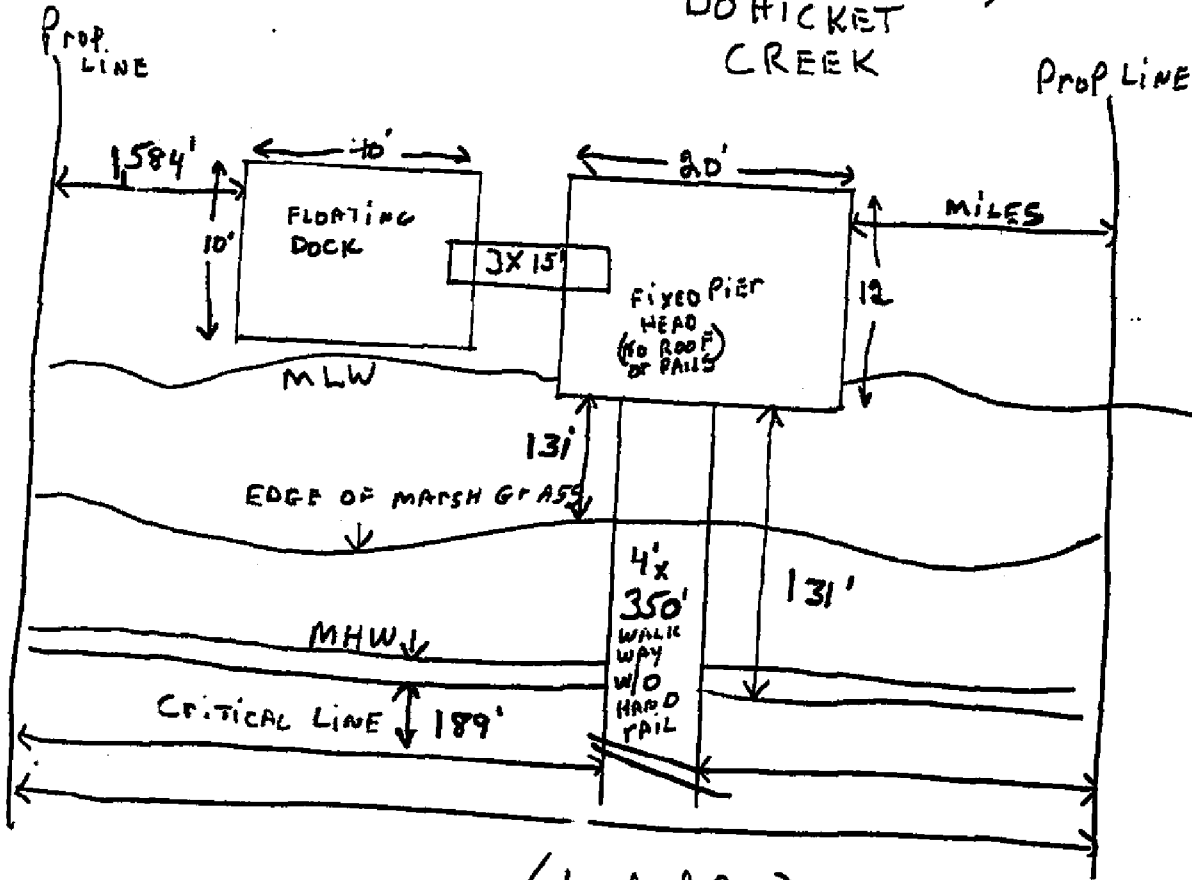 BOHICKET
CREEK
Prop.
LINE
Prop LINE
1,584'
10'
20'
MILES
FLOATING
DOCK
10'
3 X 15'
FIXED PIER
HEAD
(NO ROOF
or RAILS)
12
MLW
131'
EDGE OF MARSH GrASS
4' x
350'
WALK
WAY
W/O
HAND
rAIL
131'
MHW
CriTICAL LINE
189'